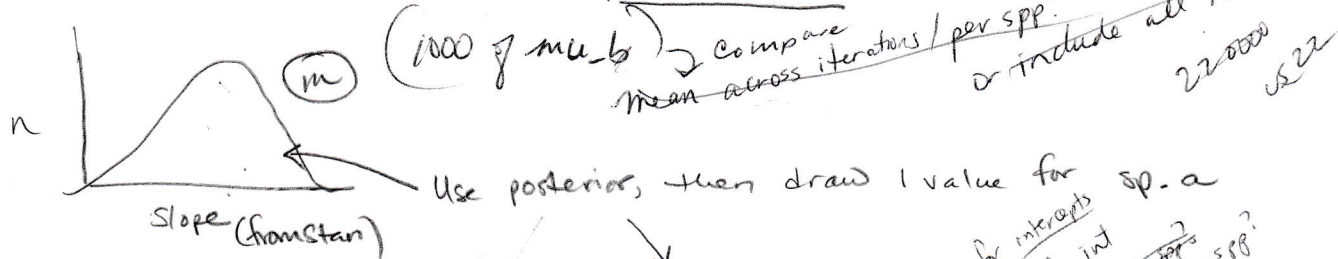 (1000 of mu_b) → compare
mean across iterations / per spp.
or include all
220000
vs 22
m
n
Use posterior, then draw 1 value for sp. a
slope (from Stan)
for intercepts
int
spp?